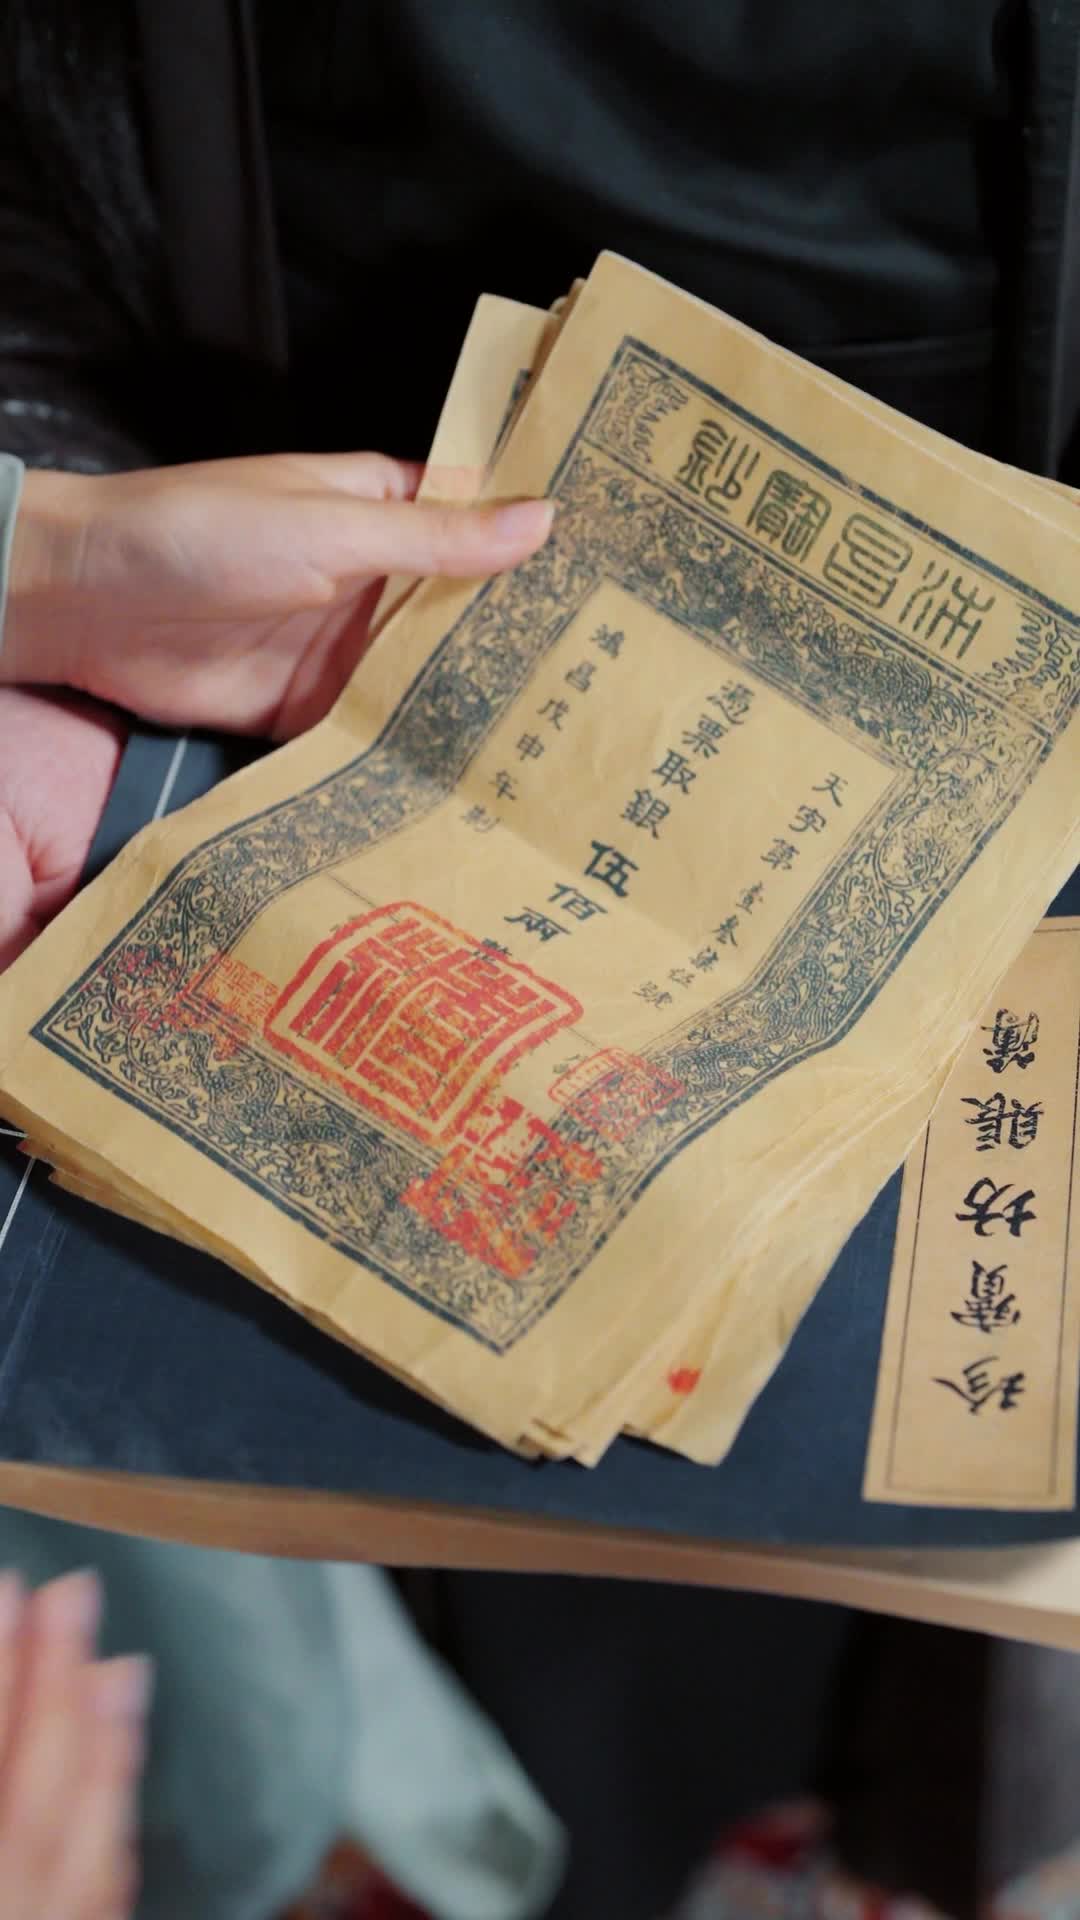 洪昌寶鈔
天字第壹叁柒伍號
憑票取銀伍佰兩
鴻昌戊申年制
珍寶坊賬簿